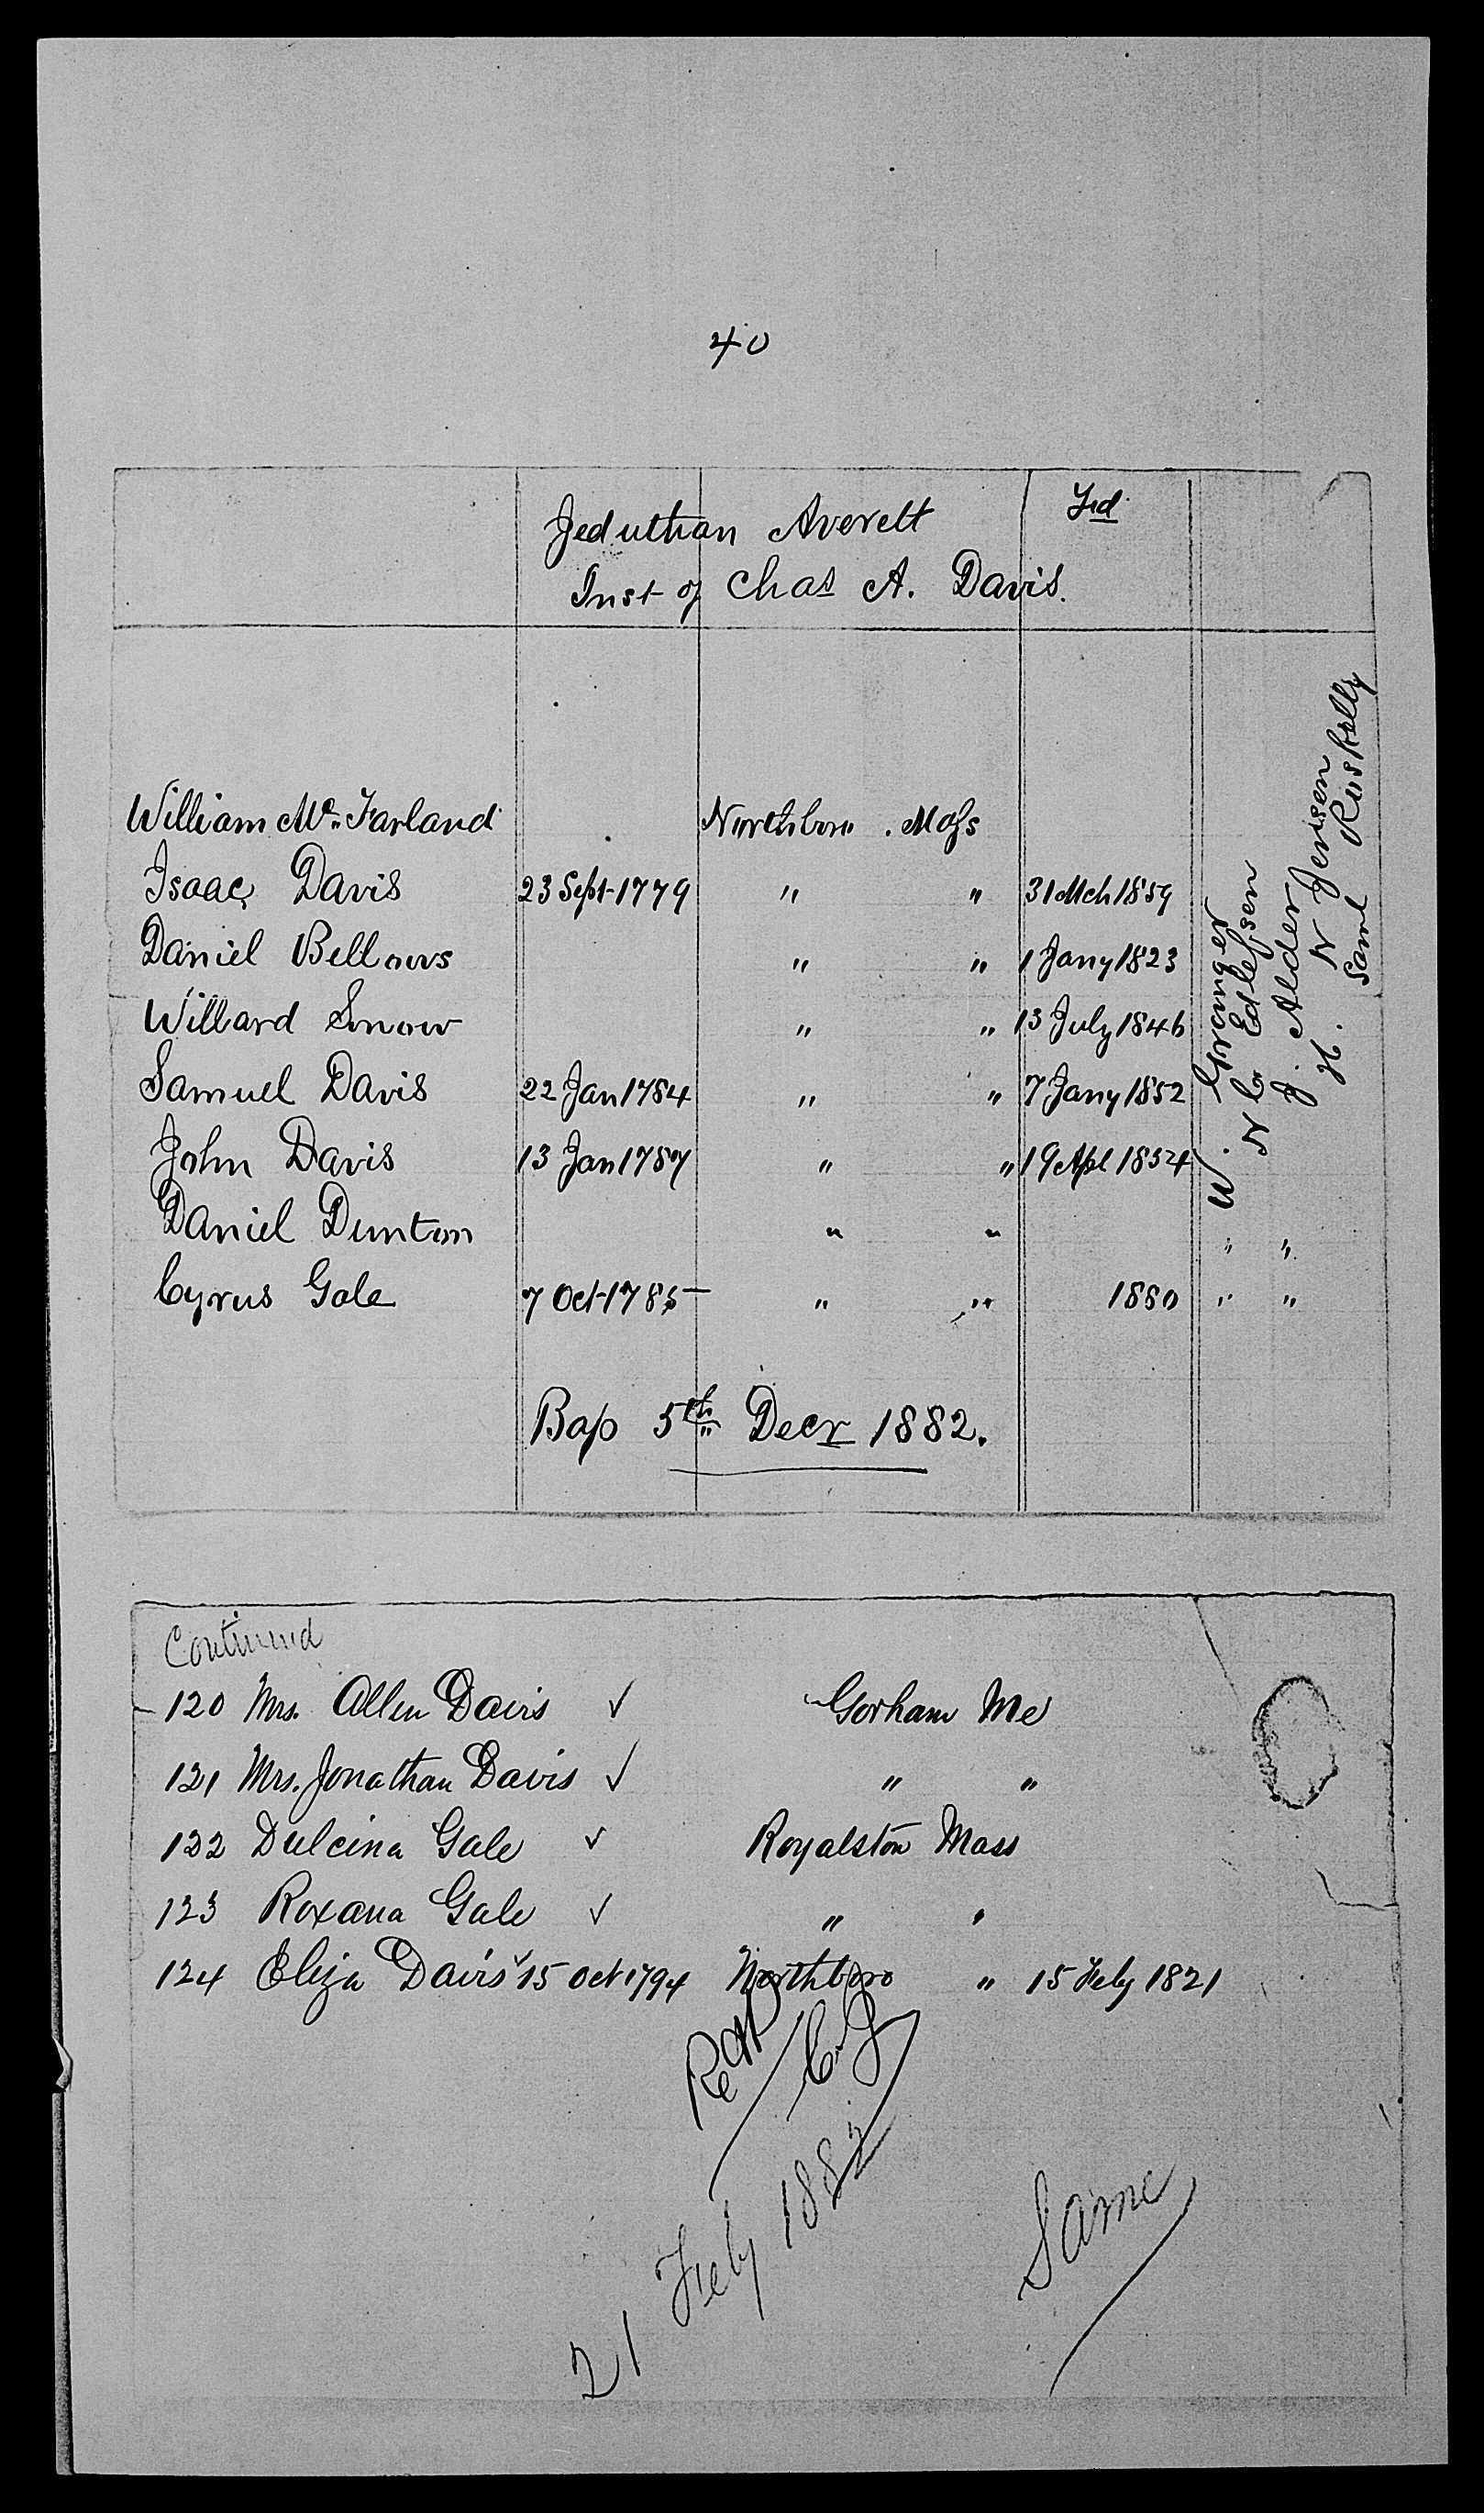 40
Jeduthan Averett Frd
Inst of Chas A. Davis.
William Mc. Farland Northboro . Mass
Isaac Davis 23 Sept 1779 " " 31 Mch 1859
Daniel Bellows " " 1 Jany 1823
Willard Snow " " 13 July 1846
Samuel Davis 22 Jan 1784 " " 7 Jany 1852
John Davis 13 Jan 1787 " " 19 Apl 1854
Daniel Dunton " " " "
Cyrus Gale 7 Oct 1785 " " 1880 " "
W. Grainger
N C Edlefsen
J. Alder
H. N Jensen
Saml Roskelly
Bap 5th Decr 1882.
Continued
120 Mrs. Allen Davis ✓ Gorham Me
121 Mrs. Jonathan Davis ✓ " "
122 Dulcina Gale ✓ Royalston Mass
123 Roxana Gale ✓ " "
124 Eliza Davis ✓ 15 Oct 1794 Northboro " 15 Feby 1821
21 Feby 1882
Same